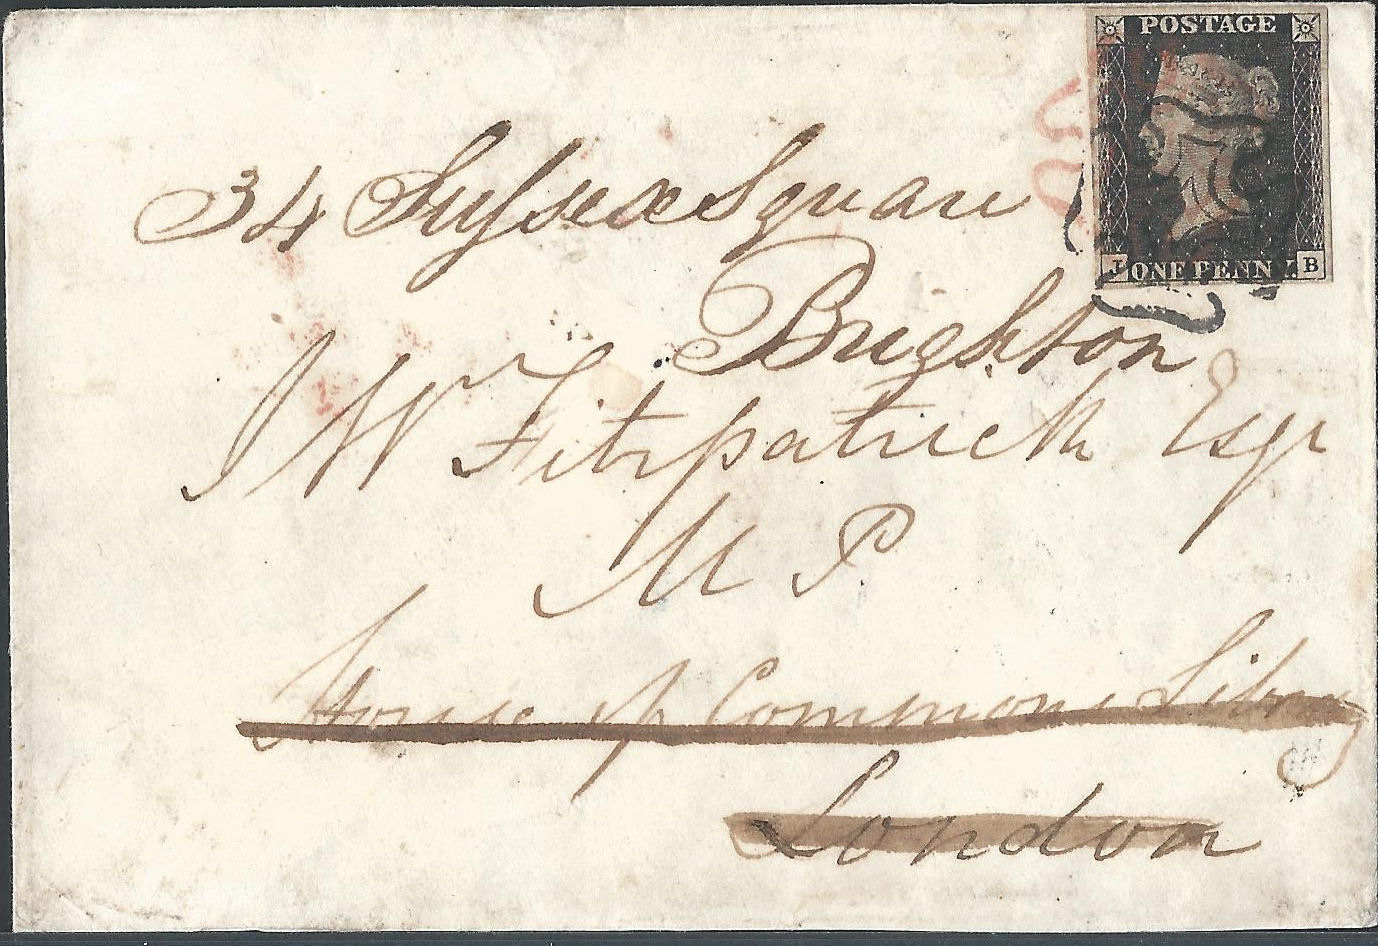 POSTAGE
ONE PENNY
B
34 Sussex Square
Brighton
J W Fitzpatrick Esqr
M P
House of Commons Library
London